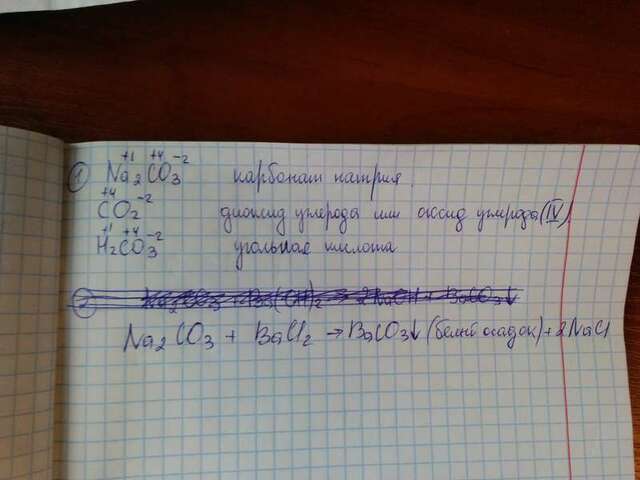 1 Na₂CO₃ +1 +4 -2 карбонат натрия
CO₂ +4 -2 диоксид углерода или оксид углерода (IV)
H₂CO₃ +1 +4 -2 угольная кислота
2 Na₂CO₃ + Ba(OH)₂ → 2NaOH + BaCO₃↓
Na₂CO₃ + BaCl₂ → BaCO₃↓ (белый осадок) + 2NaCl